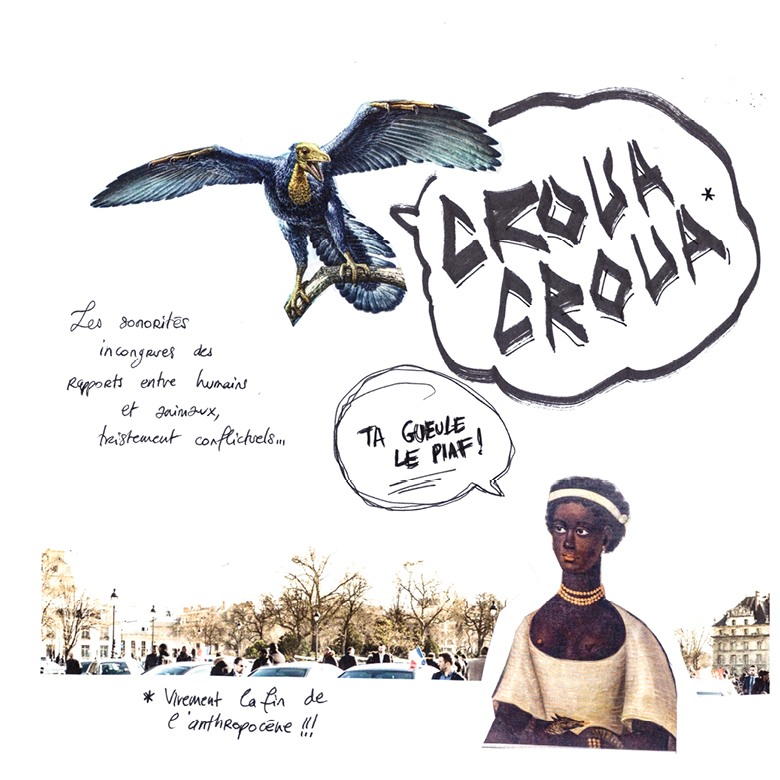 CROUA
CROUA*
Les sonorités
incongrues des
rapports entre humains
et animaux,
tristement conflictuels...
TA GUEULE
LE PIAF!
* Vivement la fin de
l'anthropocène !!!